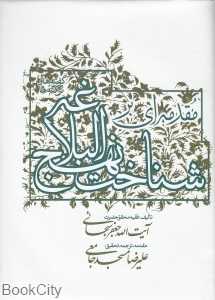 مقدمه ای بر
شناخت نهج البلاغه
تألیف: فقیه محقق حضرت
آیت الله جعفر سبحانی
مقدمه، ترجمه، تحقیق:
علیرضا سبحد جامعی
BookCity